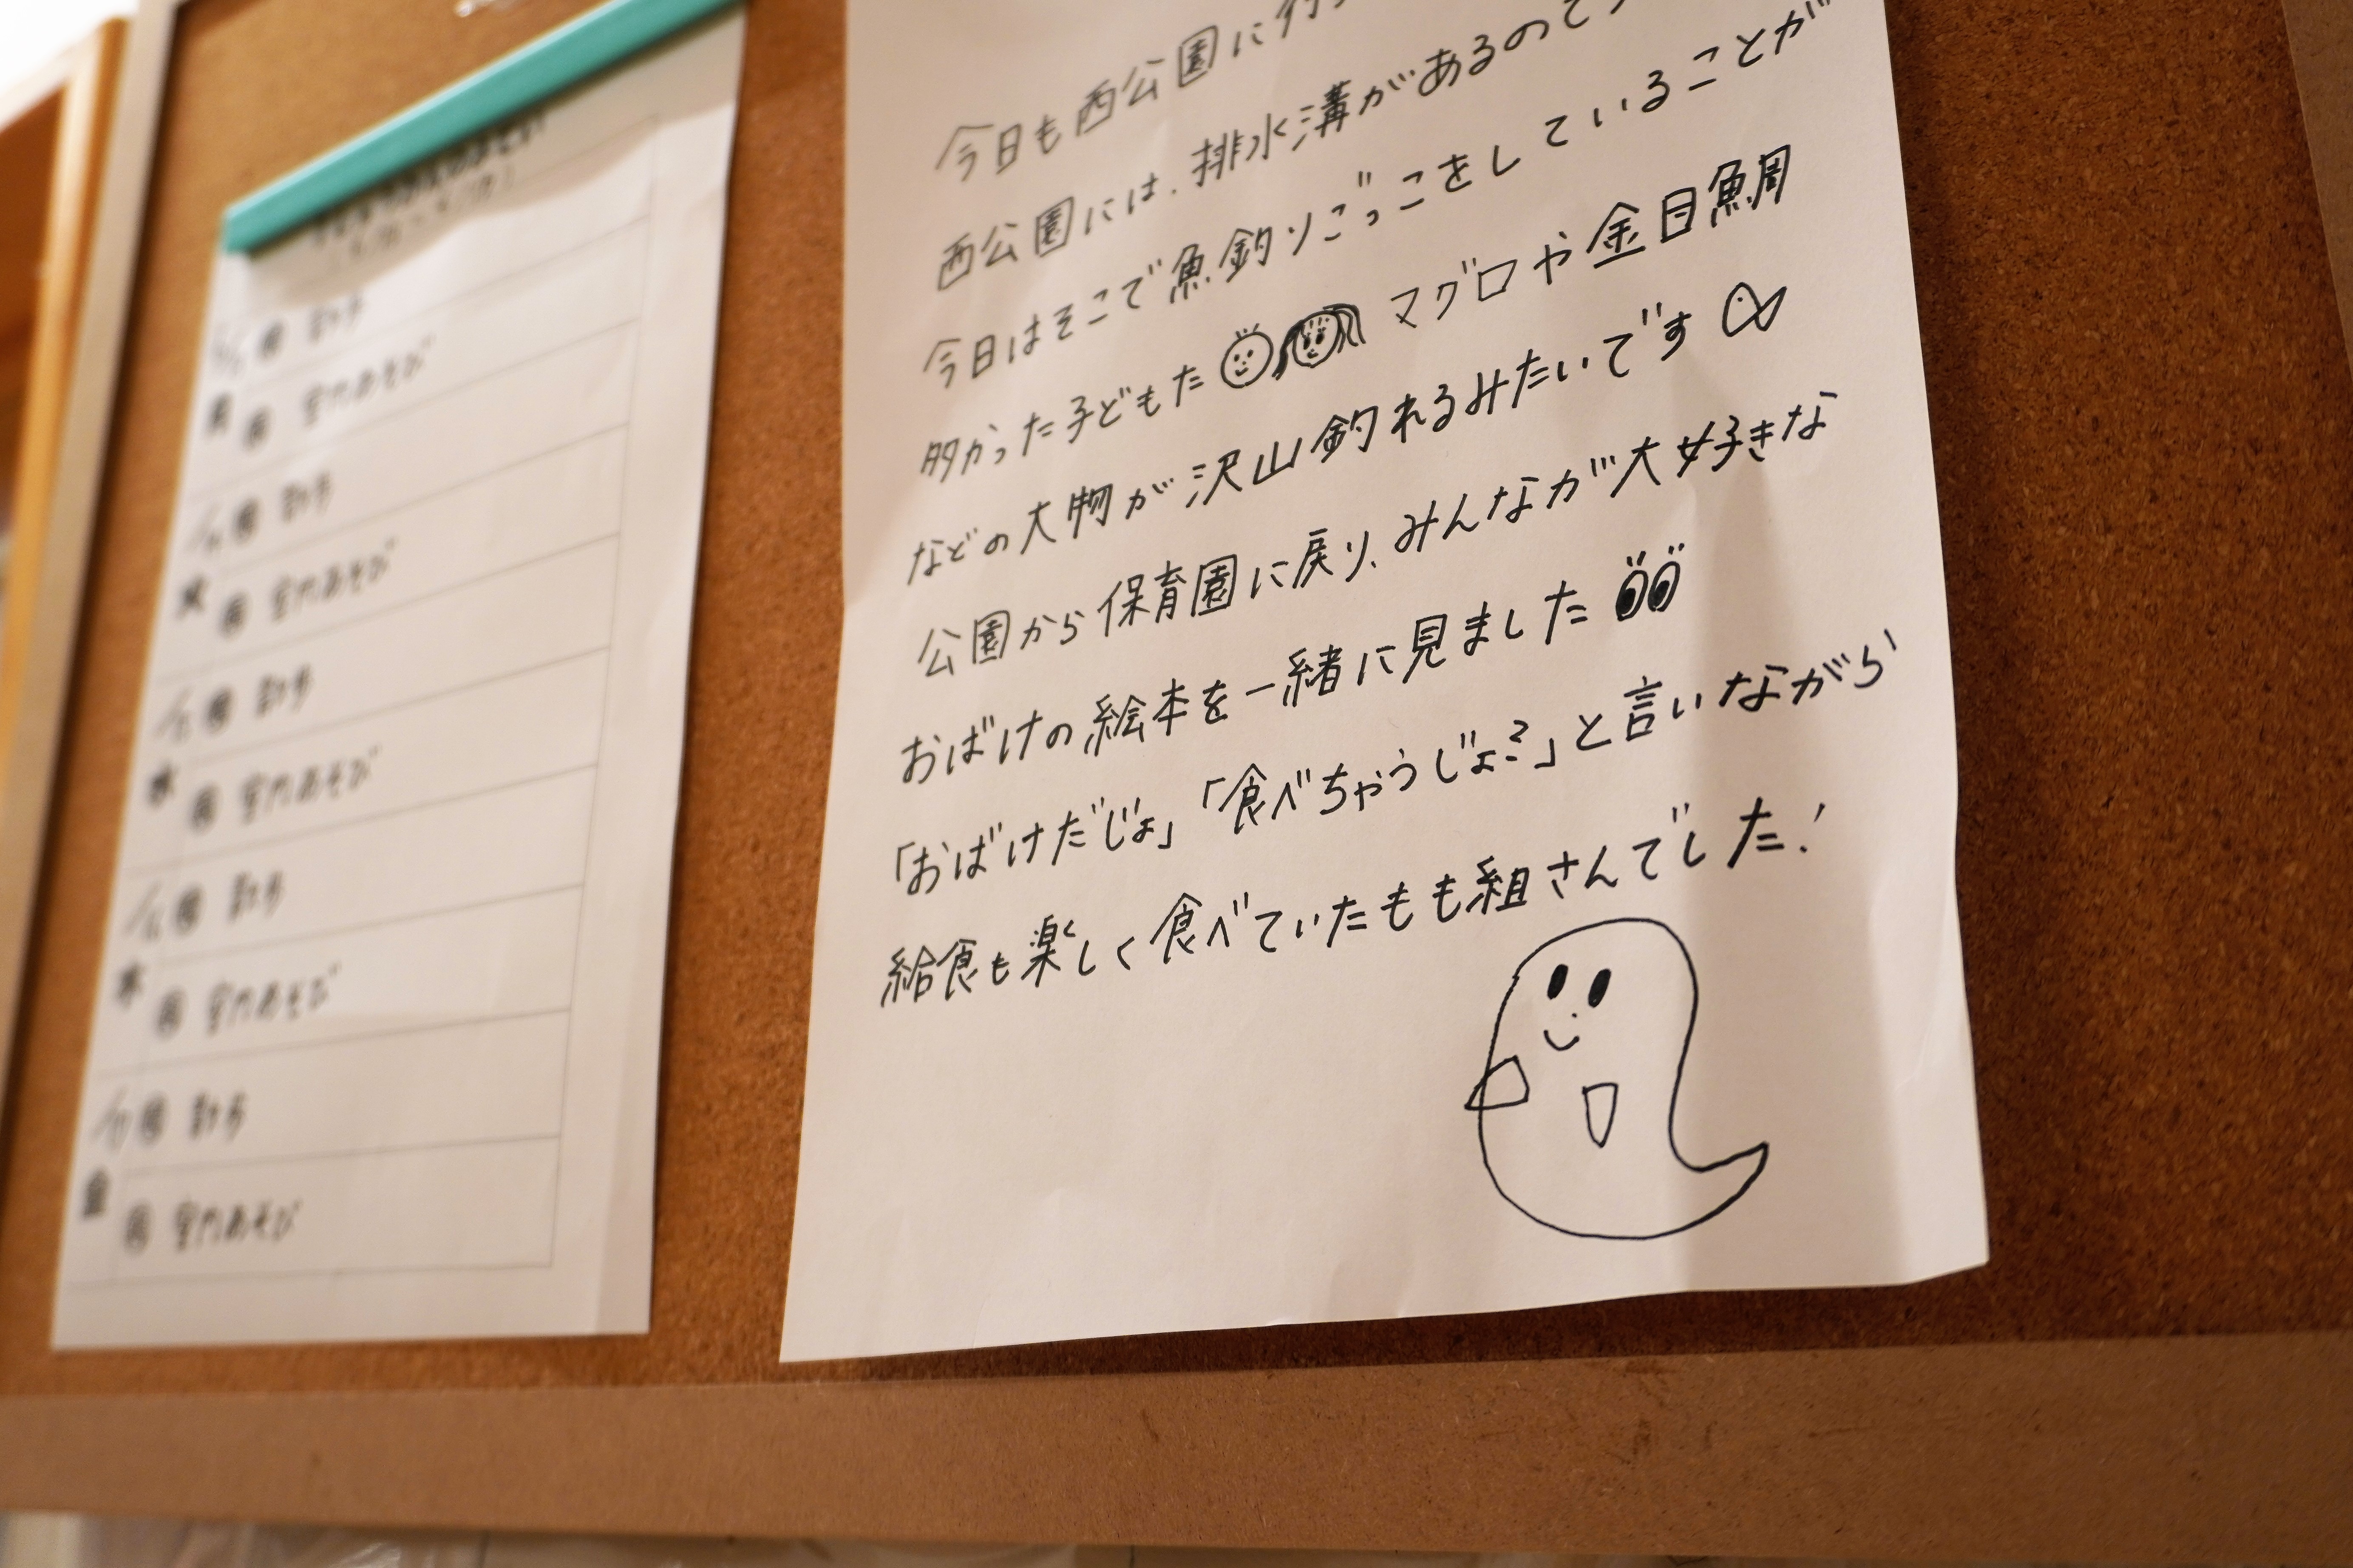 月
訓守
室内あそび
火
室内あそび
水
室内あそび
木
室内あそび
金
室内あそび
今日も西公園に行
西公園には、排水溝があるので
今日はそこで魚釣りごっこをしていることが
多かった子どもた マグロや金目鯛
などの大物が沢山釣れるみたいです
公園から保育園に戻り、みんなが大好きな
おばけの絵本を一緒に見ました
「おばけだじょ」「食べちゃうじょ?」と言いながら
給食も楽しく食べていたもも組さんでした!